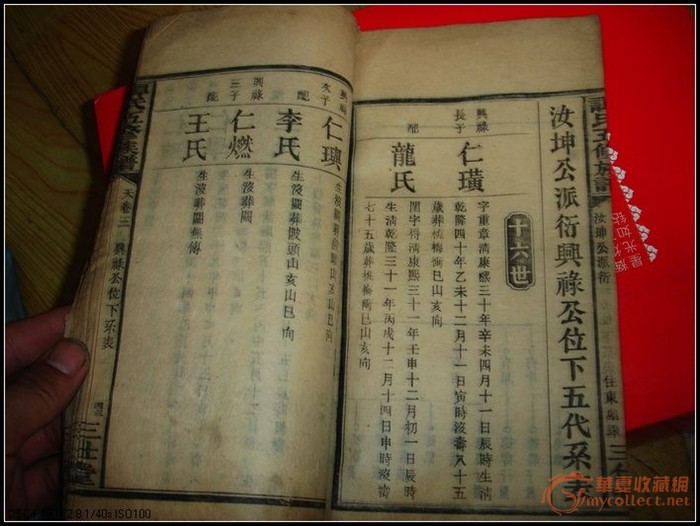 汝坤公派衍興祿公位下五代系
十六世
興祿
長子
仁璜
字重章清康熙三十年辛未四月十一日辰時生清
乾隆四十年乙未十二月十一日寅時沒壽八十五
歲葬
巳山亥向
配
龍氏
康熙三十一年壬申十二月初一日辰時
生清乾隆三十一年丙戌十二月十四日申時沒
七十五歲葬
巳山亥向
興祿
次子
仁璵
配
李氏
生沒闕葬陂頭山亥山巳向
興祿
三子
仁燃
生沒葬闕
配
王氏
生沒葬闕無傳
五修族譜
天卷三
興祿公位下系表
三仕堂
汝坤公派衍
華夏收藏網
mycollect.net
1/40s ISO100